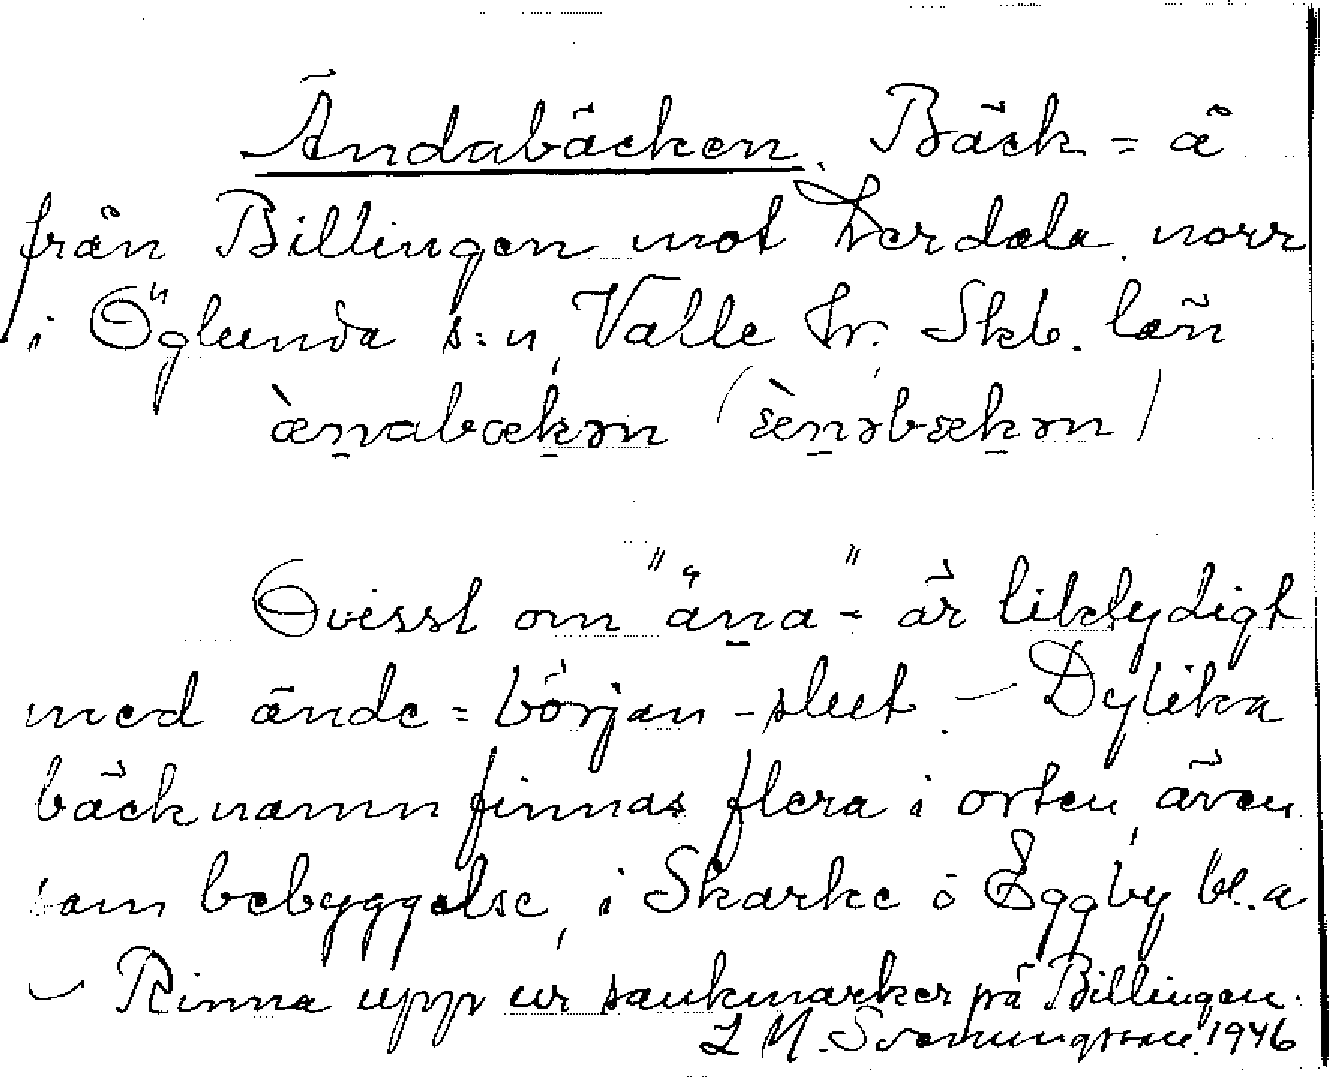 Ändabäcken. Bäck = å
från Billingen mot Lerdala norr
i Öglunda s:n, Valle hr. Skb. län
æ̀n̠abæk̠ən (s̀æn̠əbæk̠ən)
Ovisst om "äna"- är liktydigt
med ände = början - slut. - Dylika
bäcknamn finnas flera i orten, även
som bebyggelse, i Skarke o Eggby bl.a
- Rinna upp ur sankmarker på Billingen.
L M. Svenungsson. 1946